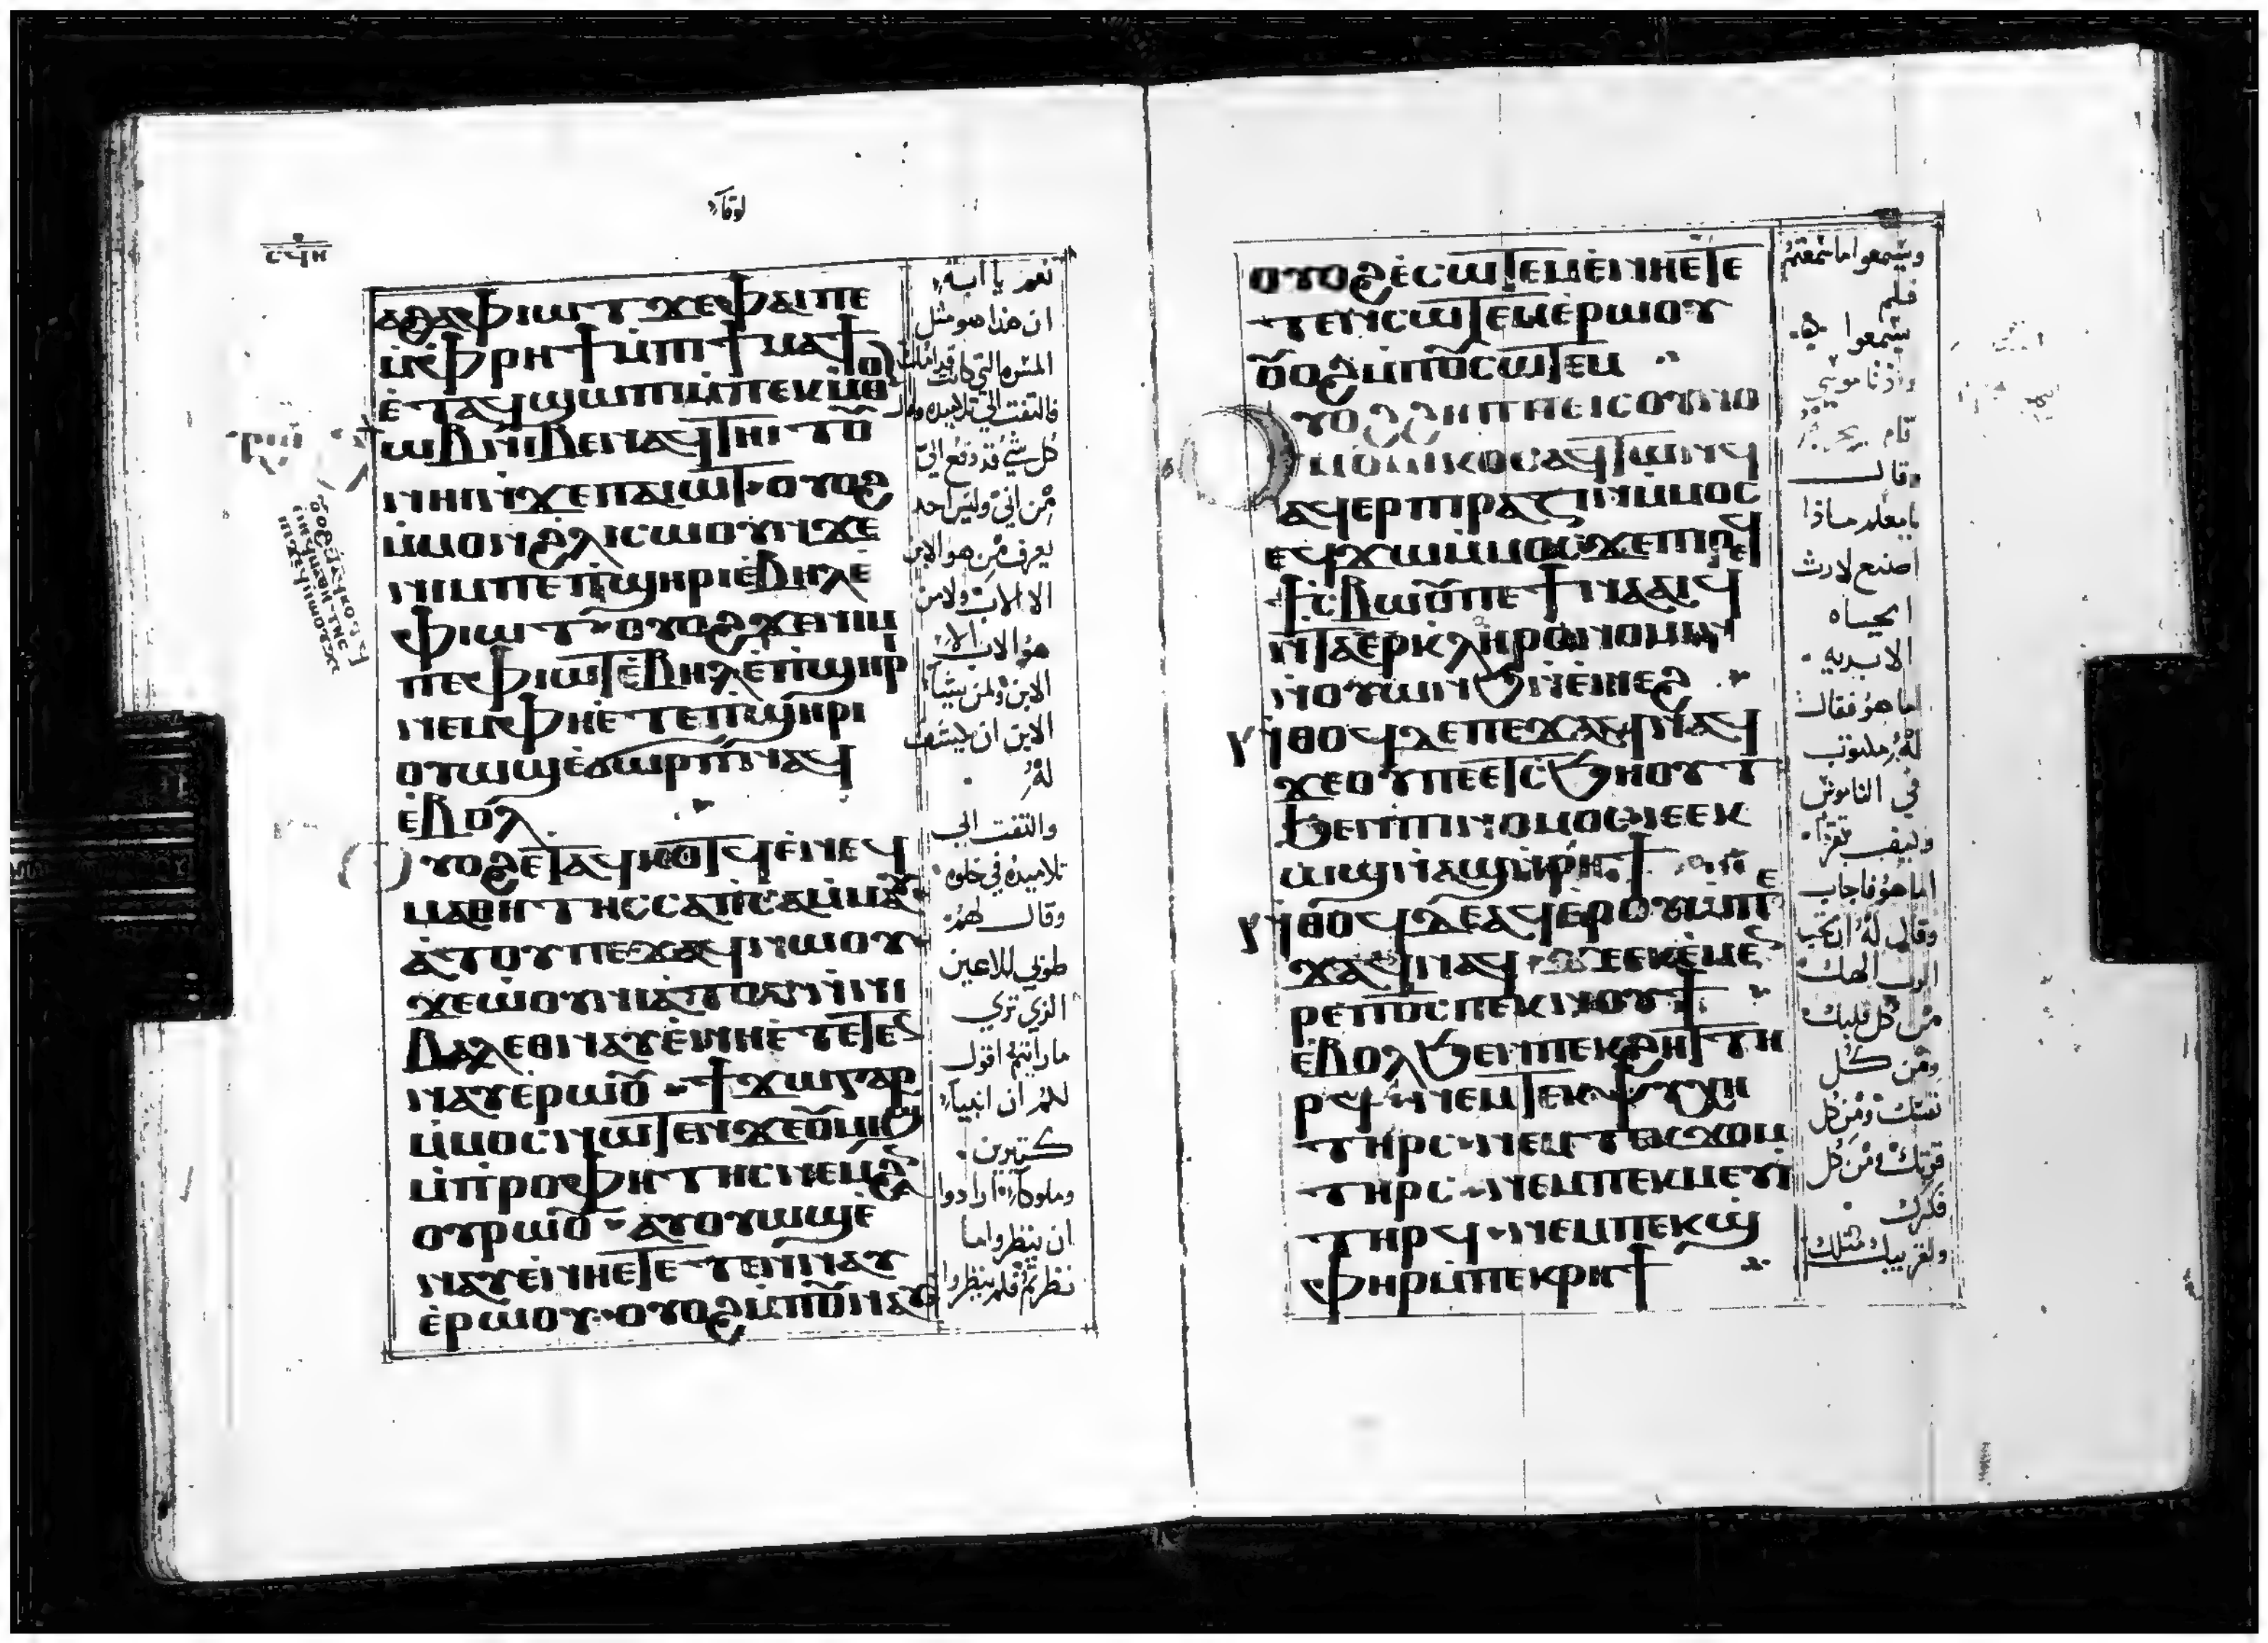 لوقا
ⲥϥⲏ
ⲁϩⲁ ⲫⲓⲱⲧ ϫⲉ ⲫⲁⲓ ⲡⲉ
ⲙ̀ⲫⲣⲏϯ ⲙ̀ⲡⲓϯⲙⲁϯ
ⲉ̀ⲧⲁϥϣⲱⲡⲓ ⲙ̀ⲡⲉⲕⲙ̀ⲑⲟ
ϩⲱⲃ ⲛⲓⲃⲉⲛ ⲁⲩⲧⲏⲓⲧⲟⲩ
ⲛⲏⲓ ⲛ̀ϫⲉ ⲡⲁⲓⲱⲧ ⲟⲩⲟϩ
ⲙ̀ⲙⲟⲛ ϩⲗⲓ ⲥⲱⲟⲩⲛ ϫⲉ
ⲛⲓⲙ ⲡⲉ ⲡ̀ϣⲏⲣⲓ ⲉ̀ⲃⲏⲗ ⲉ̀
ⲫⲓⲱⲧ ⲟⲩⲟϩ ϫⲉ ⲛⲓⲙ
ⲡⲉ ⲫⲓⲱⲧ ⲉ̀ⲃⲏⲗ ⲉ̀ⲡ̀ϣⲏⲣ
ⲛⲉⲙ ⲫⲏ ⲉ̀ⲧⲉ ⲡ̀ϣⲏⲣⲓ
ⲟⲩⲱϣ ⲉ̀ϭⲱⲣⲡ ⲛⲁϥ
ⲉ̀ⲃⲟⲗ
ⲟⲩⲟϩ ⲉⲧⲁϥⲕⲟⲧϥ ⲉ̀ⲛⲉϥ
ⲙⲁⲑⲏⲧⲏⲥ ⲥⲁⲡ̀ⲥⲁ ⲙ̀ⲙⲁⲩ
ⲁ̀ⲧⲟⲩ ⲡⲉϫⲁϥ ⲛⲱⲟⲩ
ϫⲉ ⲱⲟⲩⲛⲓⲁⲧⲟⲩ ⲛ̀ⲛⲓ
ⲃⲁⲗ ⲉⲑⲛⲁⲩ ⲉ̀ⲛⲏ ⲉ̀ⲧⲉⲧⲉⲛ
ⲛⲁⲩ ⲉ̀ⲣⲱⲟⲩ ϯϫⲱ ⲅⲁⲣ
ⲙ̀ⲙⲟⲥ ⲛⲱⲧⲉⲛ ϫⲉ ⲟⲩⲙⲏϣ
ⲙ̀ⲡⲣⲟⲫⲏⲧⲏⲥ ⲛⲉⲙ ϩⲁⲛ
ⲟⲩⲣⲱⲟⲩ ⲁⲩⲟⲩⲱϣ ⲉ̀
ⲛⲁⲩ ⲉ̀ⲛⲏ ⲉⲧⲉⲧⲉⲛⲛⲁⲩ
ⲉ̀ⲣⲱⲟⲩ ⲟⲩⲟϩ ⲙ̀ⲡⲟⲩⲛⲁⲩ
نعم يا ابه
ان هذا هو مثل
المسره التي كانت قدامك
فالتفت الى تلاميذه وقال
كل شي قد دفع الي
من ابي وليس احد
يعرف من هو الابن
الا الاب ولا من
هو الاب الا
الابن ولمن يشا
الابن ان يكشف
له
والتفت الي
تلاميذه في خلوه
وقال لهم
طوبي للاعين
الذي تري
ما رايتم اقول
لكم ان انبيا
كتيرين
وملوكا ارادوا
ان ينظروا ما
نظرتم فلم ينظروا
ⲟⲩⲟϩ ⲉ̀ⲥⲱⲧⲉⲙ ⲉ̀ⲛⲏ ⲉⲧⲉ
ⲧⲉⲛⲥⲱⲧⲉⲙ ⲉ̀ⲣⲱⲟⲩ
ⲟⲩⲟϩ ⲙ̀ⲡⲟⲩⲥⲱⲧⲉⲙ
ⲟⲩⲟϩ ϩⲏⲡⲡⲉ ⲓⲥ ⲟⲩⲛⲟ
ⲙⲟⲙⲓⲕⲟⲥ ⲁϥⲧⲱⲛϥ
ⲁϥⲉⲣⲡⲓⲣⲁⲍⲓⲛ ⲙ̀ⲙⲟϥ
ⲉϥϫⲱ ⲙ̀ⲙⲟⲥ ϫⲉ ⲡⲓⲣⲉϥ
ϯⲥⲃⲱ ⲟⲩ ⲡⲉ ϯⲛⲁⲁⲓϥ
ⲛ̀ⲧⲁⲉⲣⲕⲗⲏⲣⲟⲛⲟⲙⲓⲛ
ⲛ̀ⲟⲩⲱⲛϧ ⲛ̀ⲉ̀ⲛⲉϩ
ⲛ̀ⲑⲟϥ ⲇⲉ ⲡⲉϫⲁϥ ⲛⲁϥ
ϫⲉ ⲟⲩ ⲡⲉ ⲉⲧⲥϧⲏⲟⲩⲧ
ϧⲉⲛ ⲡⲓⲛⲟⲙⲟⲥ ⲉⲕ
ⲱϣ ⲛ̀ⲁϣ ⲛ̀ⲣⲏϯ
ⲛ̀ⲑⲟϥ ⲇⲉ ⲁϥⲉⲣⲟⲩⲱ̀ ⲡⲉ
ϫⲁϥ ⲛⲁϥ ϫⲉ ⲉⲕⲉ̀ⲙⲉⲛ
ⲣⲉ ⲡ⳪ ⲡⲉⲕⲛⲟⲩϯ
ⲉ̀ⲃⲟⲗ ϧⲉⲛ ⲡⲉⲕϩⲏⲧ ⲧⲏ
ⲣϥ ⲛⲉⲙ ⲧⲉⲕⲯⲩⲭⲏ
ⲧⲏⲣⲥ ⲛⲉⲙ ⲧⲉⲕϫⲟⲙ
ⲧⲏⲣⲥ ⲛⲉⲙ ⲡⲉⲕⲙⲉⲩⲓ
ⲧⲏⲣϥ ⲛⲉⲙ ⲡⲉⲕϣ
ⲫⲏⲣ ⲙ̀ⲡⲉⲕⲣⲏϯ
ويسمعوا ما سمعتم
فلم
يسمعوا
واذ ناموسي
قام
وقال
يا معلم ماذا
اصنع لارث
الحياه
الابديه
اما هو فقال
له ما مكتوب
في الناموس
وكيف تقرا
اما هو فاجاب
وقال له ان تحب
الرب الهك
من كل قلبك
ومن كل
نفسك ومن كل
قوتك ومن كل
فكرك
ولقريبك مثلك